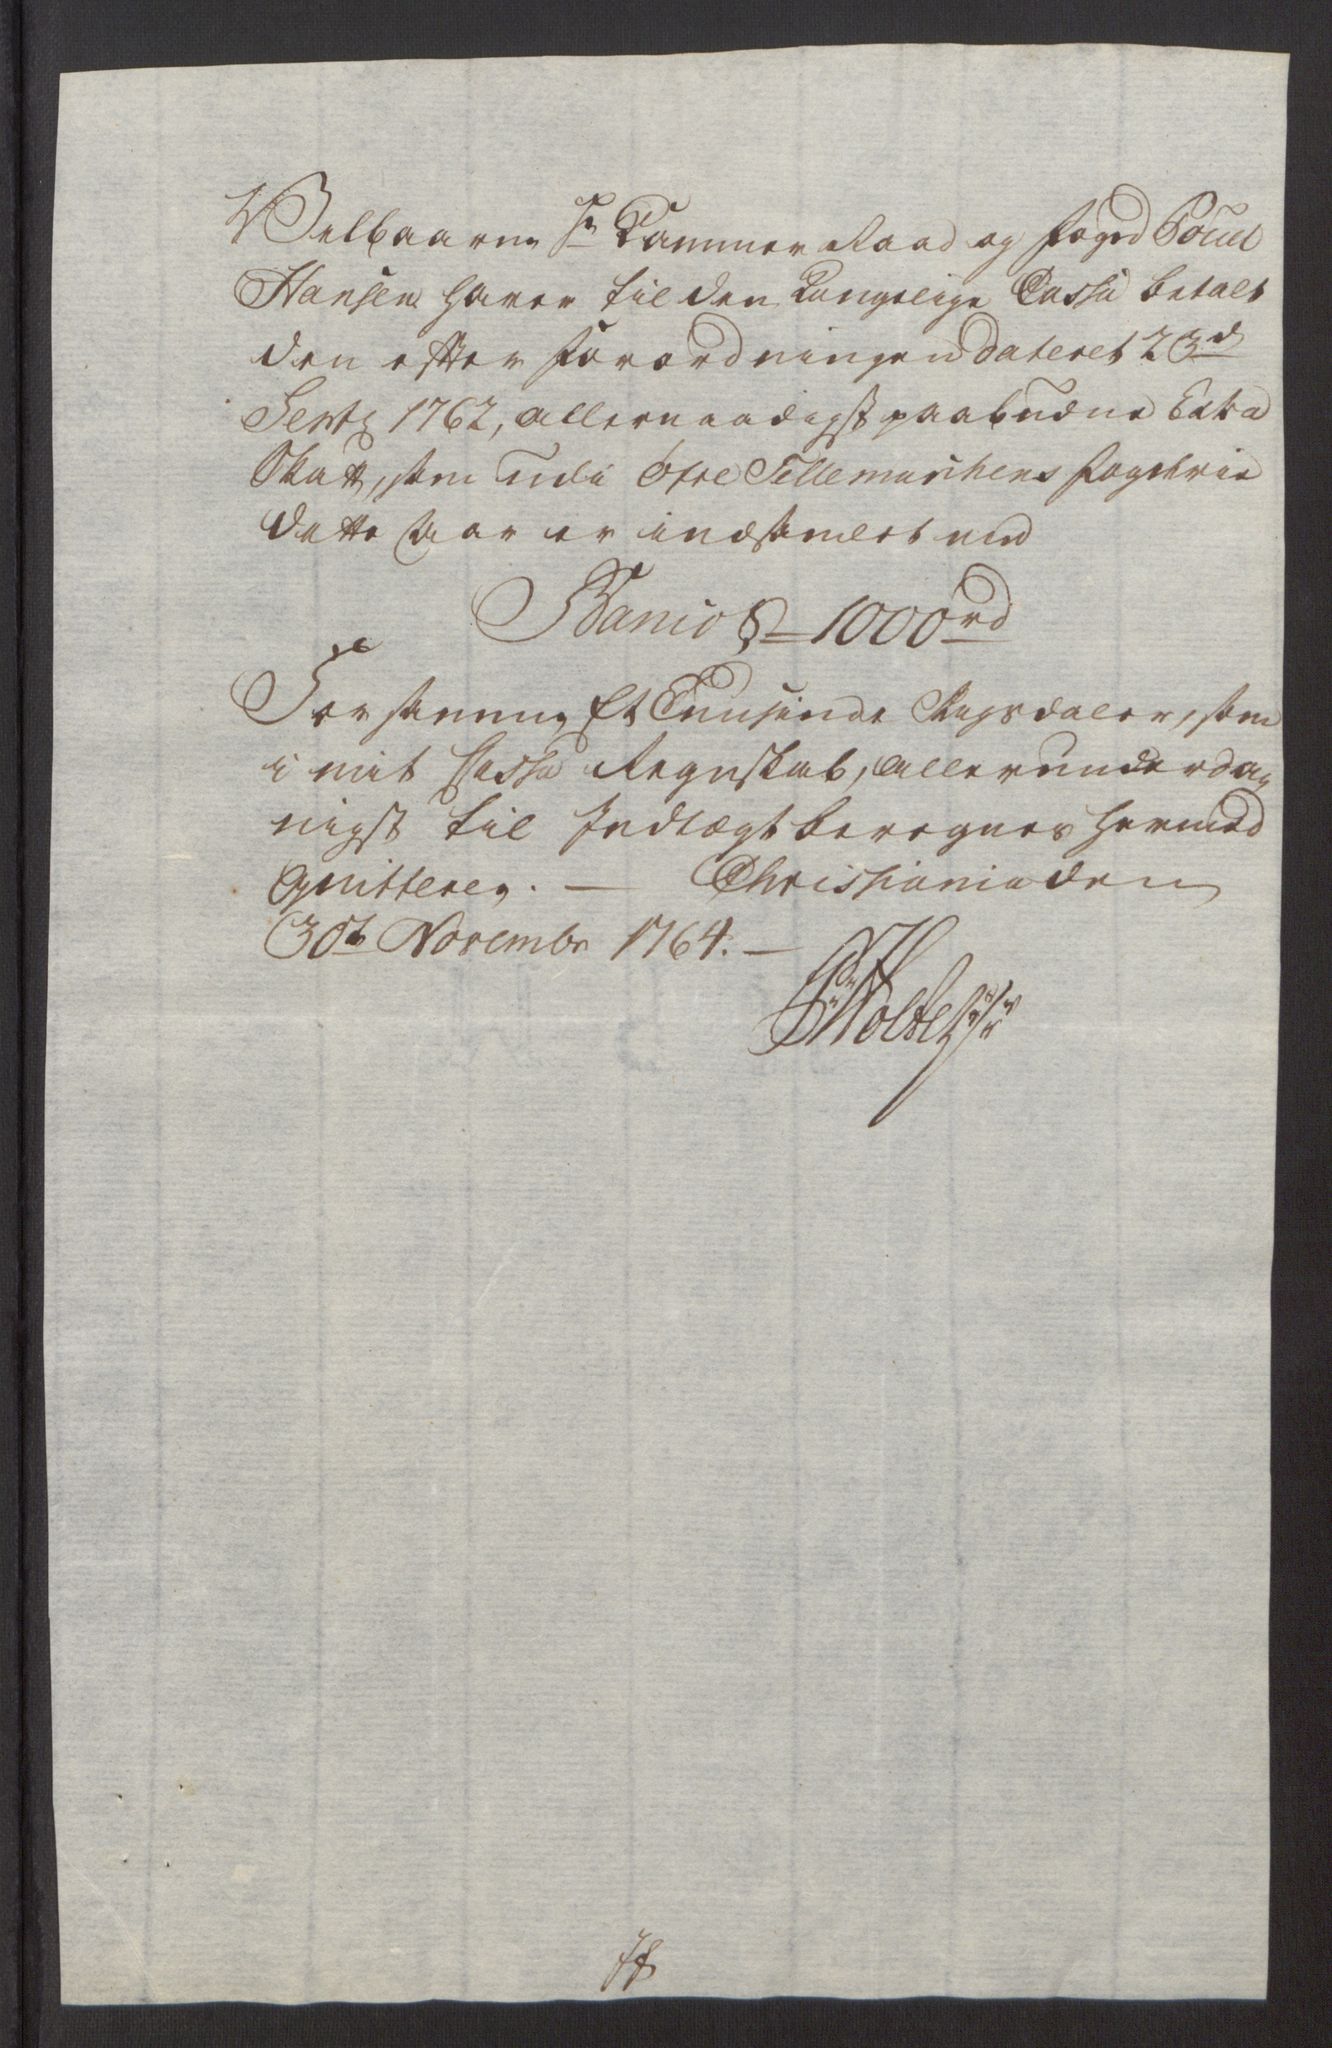 Velbaarne Hr Cammer Raad og foged Poüel
Hansen haver til den Kongelige Cassa betalt
den efter Forordningen dateret 23d
Septbr 1762, allernaadigst paabudne Extra
Skatt, som udi Øfre Tellemarkens fogderie
dette Aar er indsamlet med
Banco S 1000 rd
For samme Et Tusinde Rigsdaler, som
i mit Cassa Regnskab, allerunderdag
nigst til Indtægt beregnes hermed
qvitteres. — Christiania den
30te Novembr 1764. —
Holte